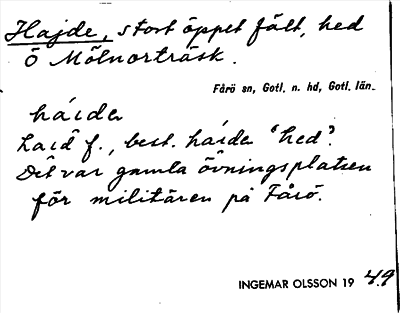 Hajde, stort öppet fält, hed
Ö Mölnorträsk.
Fårö sn, Gotl. n. hd, Gotl. län.
háida
haid f., best. háida "hed".
Det var gamla övningsplatsen
för militären på Fårö.
INGEMAR OLSSON 19 49